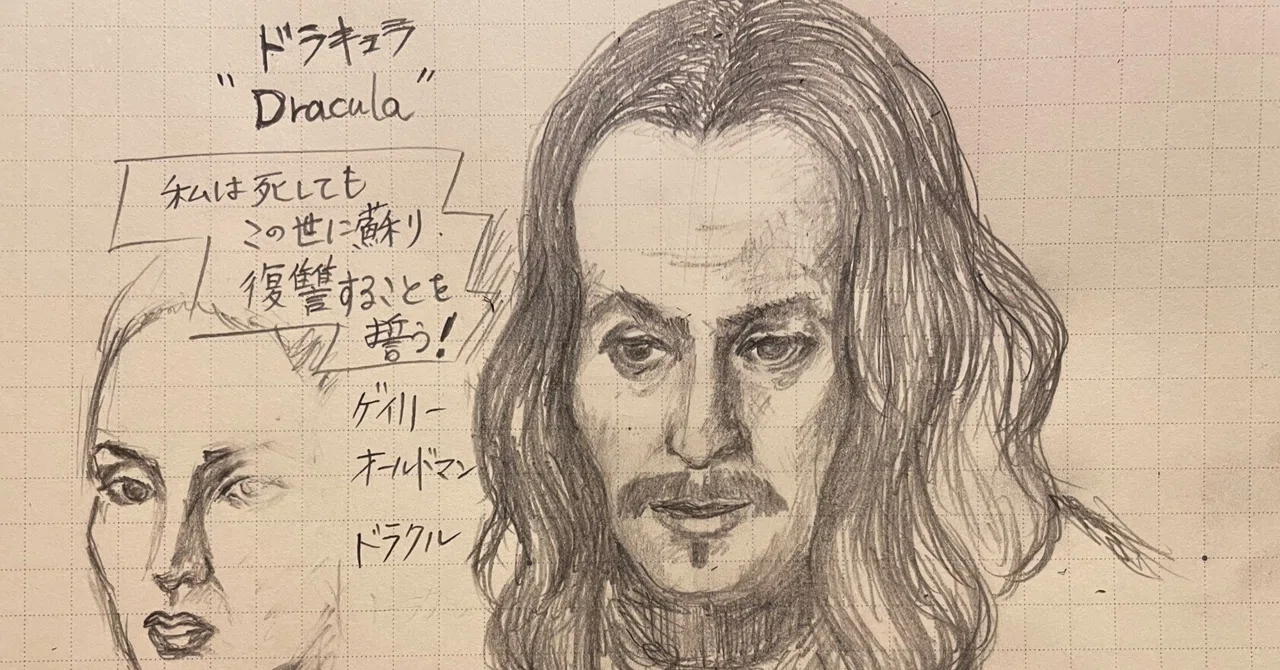 ドラキュラ
"Dracula"
私は死しても
この世に蘇り
復讐することを
誓う!
ゲイリー
オールドマン
ドラクル